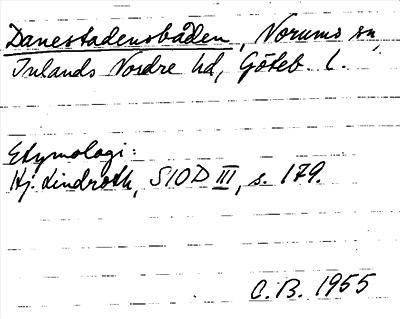 Danestadensbåden, Norums sn,
Inlands Nordre hd, Göteb. l.
Etymologi:
Hj. Lindroth, SIOD III, s. 179.
C. B. 1955